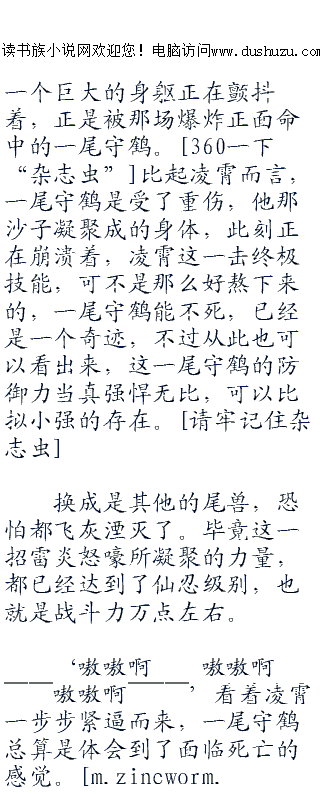 读书族小说网欢迎您！电脑访问www.dushuzu.com
一个巨大的身躯正在颤抖
着，正是被那场爆炸正面命
中的一尾守鹤。[360一下
“杂志虫”]比起凌霄而言，
一尾守鹤是受了重伤，他那
沙子凝聚成的身体，此刻正
在崩溃着，凌霄这一击终极
技能，可不是那么好熬下来
的，一尾守鹤能不死，已经
是一个奇迹，不过从此也可
以看出来，这一尾守鹤的防
御力当真强悍无比，可以比
拟小强的存在。[请牢记住杂
志虫]
换成是其他的尾兽，恐
怕都飞灰湮灭了。毕竟这一
招雷炎怒嚎所凝聚的力量，
都已经达到了仙忍级别，也
就是战斗力万点左右。
——‘嗷嗷啊　　嗷嗷啊
嗷嗷啊——’看着凌霄
一步步紧逼而来，一尾守鹤
总算是体会到了面临死亡的
感觉。[m.zincworm.